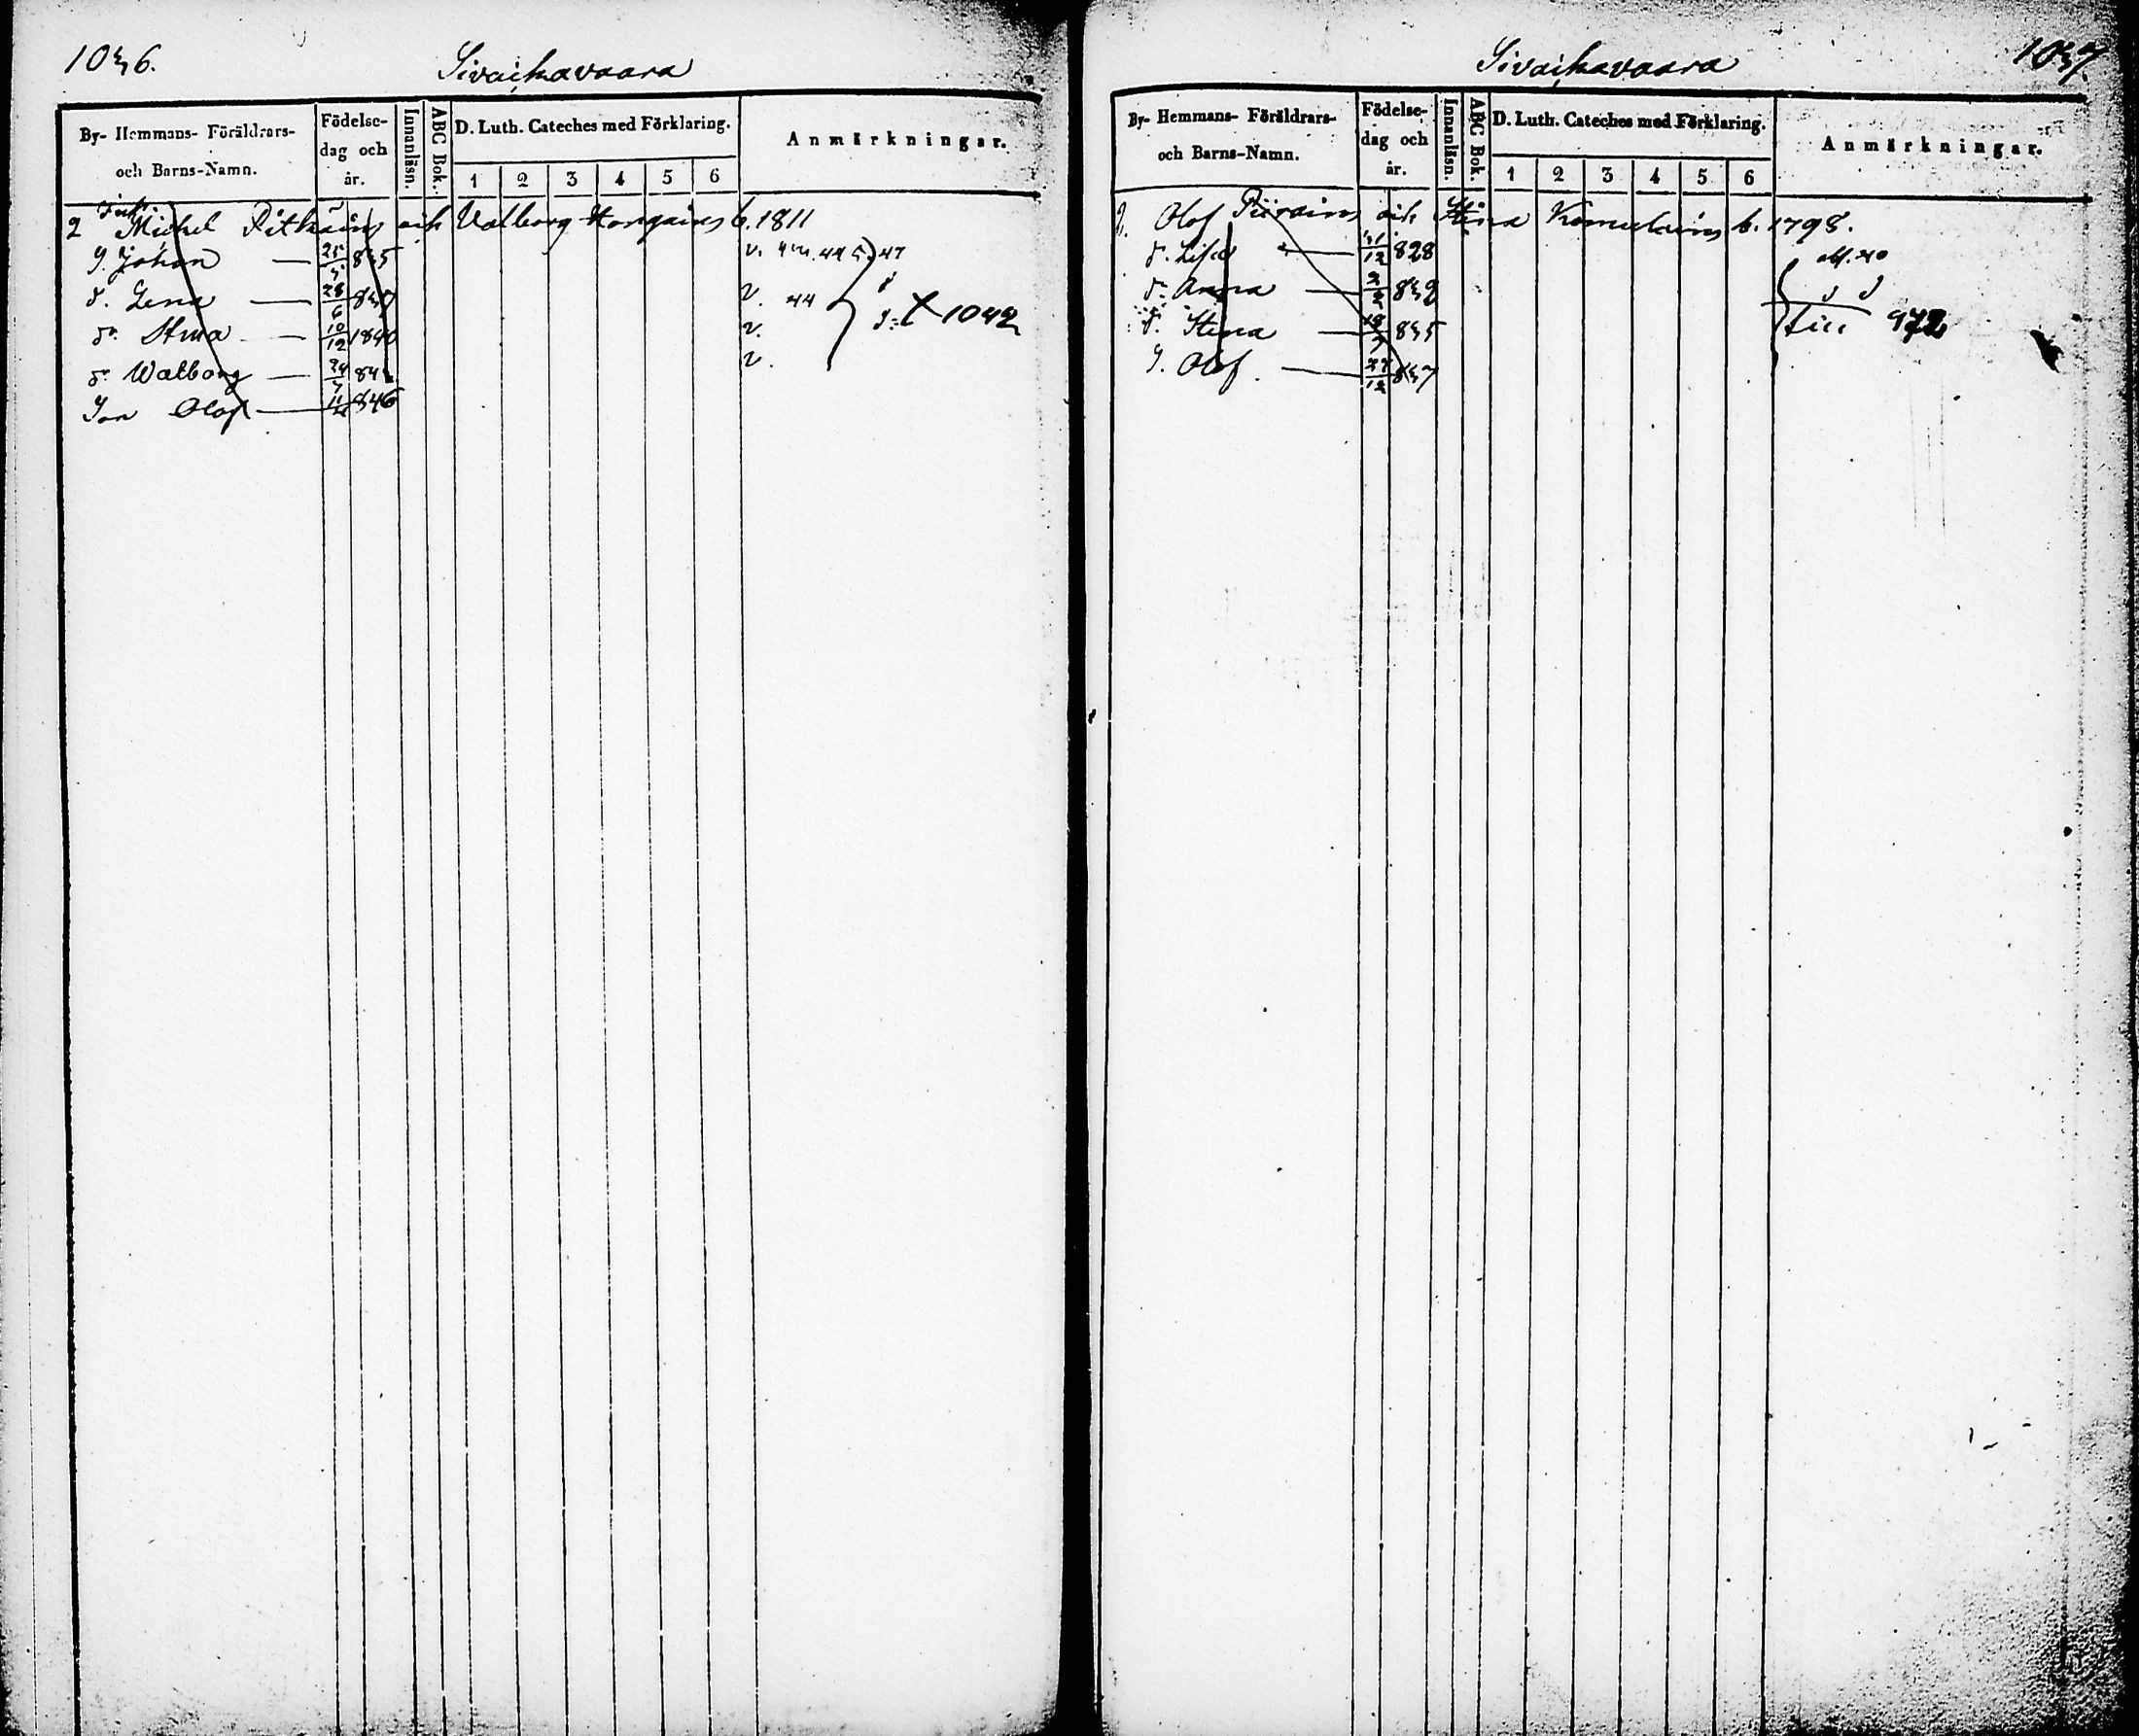 1036.
Sivackavaara
By- Hemmans- Föräldrars-
och Barns-Namn.
Födelse-
dag och
år.
Innanläsn.
ABC Bok.
D. Luth. Cateches med Förklaring.
1 2 3 4 5 6
Anmärkningar.
2 Michel Pitkäin och Valborg Horgain b. 1811
J. Johan — 25 835 v. 47
d. Lena — 28/6 v. 44
d. Stina — 10/12 1840 v. 1042
d. Walborg — 24/7 v.
Son Olof — 846
1037.
Sivackavaara
By- Hemmans- Föräldrars-
och Barns-Namn.
Födelse-
dag och
år.
Innanläsn.
ABC Bok.
D. Luth. Cateches med Förklaring.
1 2 3 4 5 6
Anmärkningar.
Olof Piirain och Stina Komulain b. 1798.
d. Lisa 31/12 828
d. Anna — 2/2 832
d. Stina — 18/7 835 till 972
J. Olof. — 27/12 837